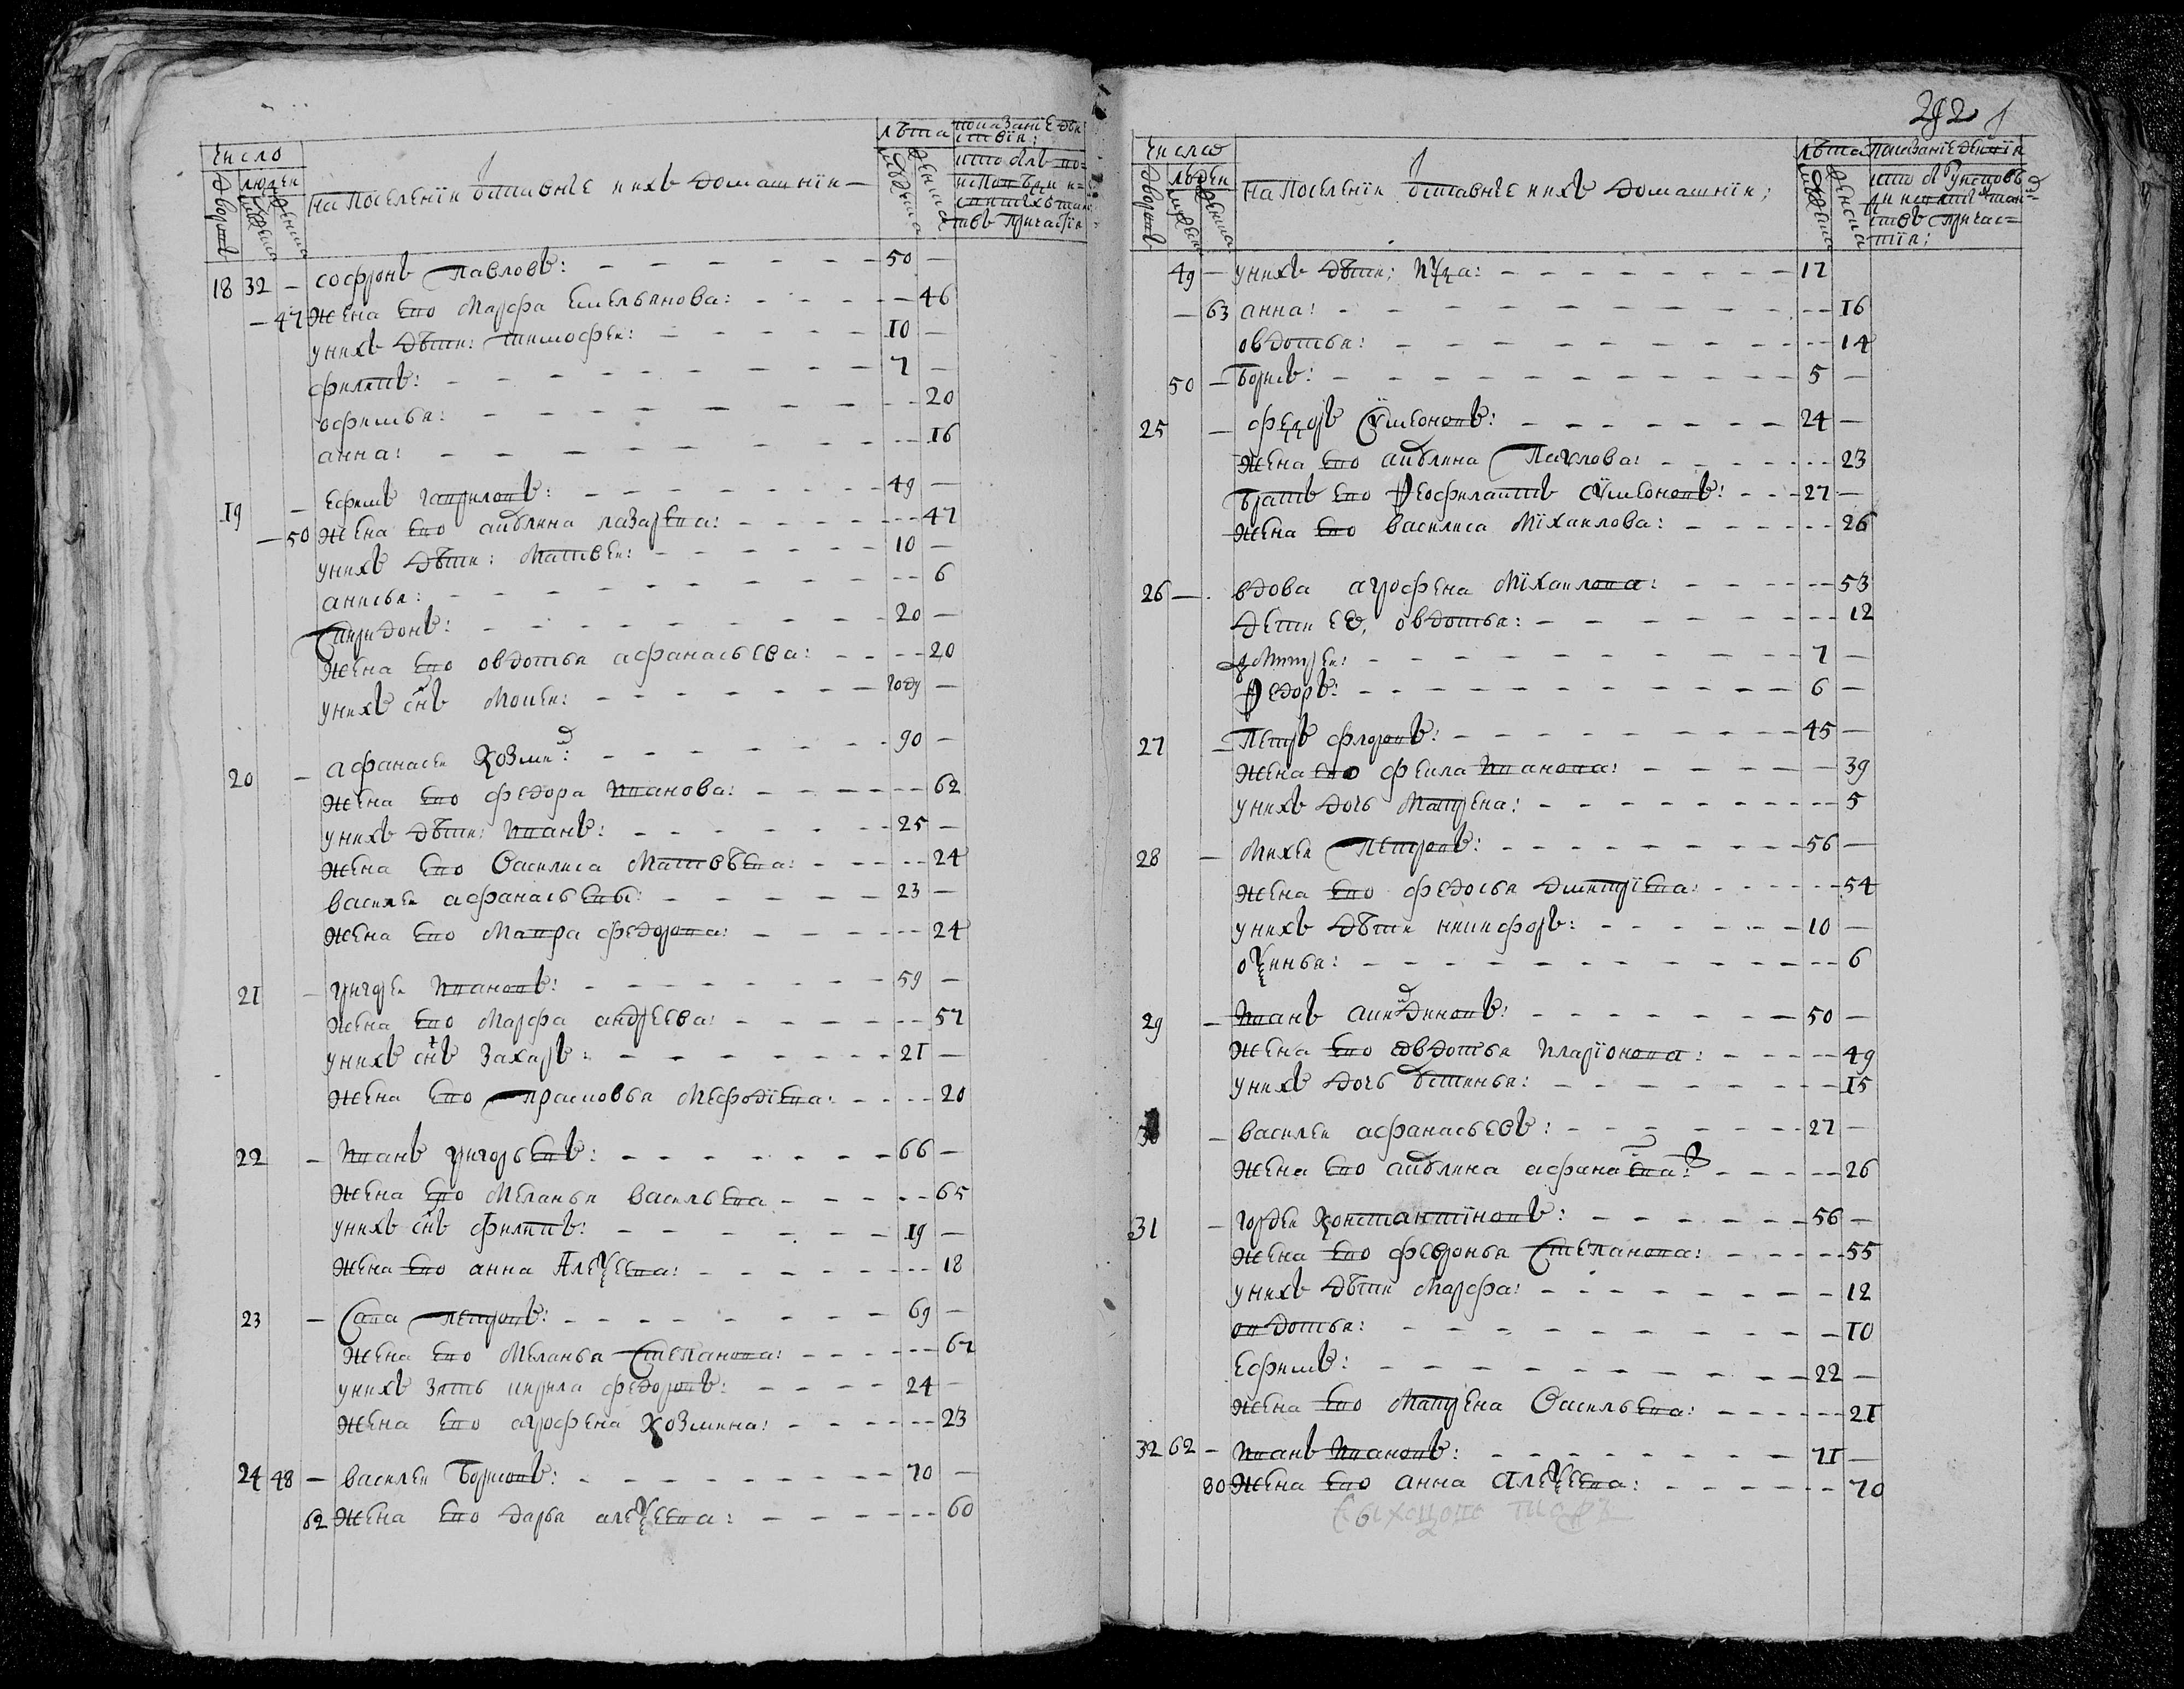 число
людей
дворовъ
мужеска
женска
На поселенїи отставные и ихъ домашнїи
лѣта
мужеска
женска
показанїе дѣйствїи:
18 32 — Софронъ Павловъ: 50 —
— 47 жена ево Марфа Емельянова: — 46
у нихъ дѣти: Тимофеи: 10 —
Филипъ: 7 —
Офимья: — 20
Анна: — 16
19 — Ефимъ Гавриловъ: 49 —
— 50 жена ево Акулина Лазарева: — 47
у нихъ дѣти: Матвеи: 10 —
Анисья: — 6
Спиридонъ: 20 —
жена ево Овдотья Афанасьева: — 20
у нихъ сн҃ъ Мокеи: году —
20 — Афанасеи Козми: 90 —
жена ево Федора Иванова: — 62
у нихъ дѣти: Иванъ: 25 —
жена ево Василиса Матвѣева: — 24
Василеи Афанасьевъ: 23 —
жена ево Мавра Федорова: — 24
21 — Григореи Ивановъ: 59 —
жена ево Марфа Андреева: — 57
у нихъ сн҃ъ Захаръ: 21 —
жена ево Прасковья Мефодїева: — 20
22 — Иванъ Григорьевъ: 66 —
жена ево Меланья Васильева — 65
у нихъ сн҃ъ Филипъ: 19 —
жена ево Анна Алеѯеева: — 18
23 — Сава Петровъ: 69 —
жена ево Меланья Степанова: — 67
у нихъ зять Кирила Федоровъ: 24 —
жена ево Агрофена Козмина: — 23
24 48 — Василеи Борисовъ: 70 —
62 жена ево Дарья Алеѯеева: — 60
282
число
людеи
дворовъ
мужеска
женска
На поселенїи отставные и ихъ домашнїи;
лѣта
мужеска
женска
показанїе
49 — у нихъ дѣти: 17
— 63 Анна: — 16
Овдотья: — 14
50 — Борисъ: 5 —
25 — Федоръ Сѷмеоновъ: 24 —
жена ево Акулина Павлова: — 23
братъ ево Ѳеофилактъ Сѷмеоновъ: 27 —
жена ево Василиса Мїхаилова: — 26
26 — вдова Агрофена Мїхаилова: — 53
дети ее, Овдотья: — 12
Дмитреи: 7 —
Ѳедоръ: 6 —
27 — Петръ Флоровъ: 45 —
жена ево Фекла Иванова: — 39
у нихъ дочь Матрена: — 5
28 — Михеи Петровъ: 56 —
жена ево Федосья Дмитрїева: — 54
у нихъ дѣти Никифоръ: 10 —
Оѯинья: — 6
29 — Иванъ Аикдиновъ: 50 —
жена ево Овдотья Иларїонова: — 49
у нихъ дочь Устинья: — 15
30 — Василеи Афанасьевъ: 27 —
жена ево Акулина Афанасева: — 26
31 — Гордеи Константїновъ: 56 —
жена ево Феѳронья Степанова: — 55
у нихъ дѣти Марфа: — 12
Овдотья: — 10
Ефимъ: 22 —
жена ево Матрена Васильева: — 21
32 62 — Иванъ Ивановъ: 71 —
80 жена ево Анна Алеѯеева: — 70